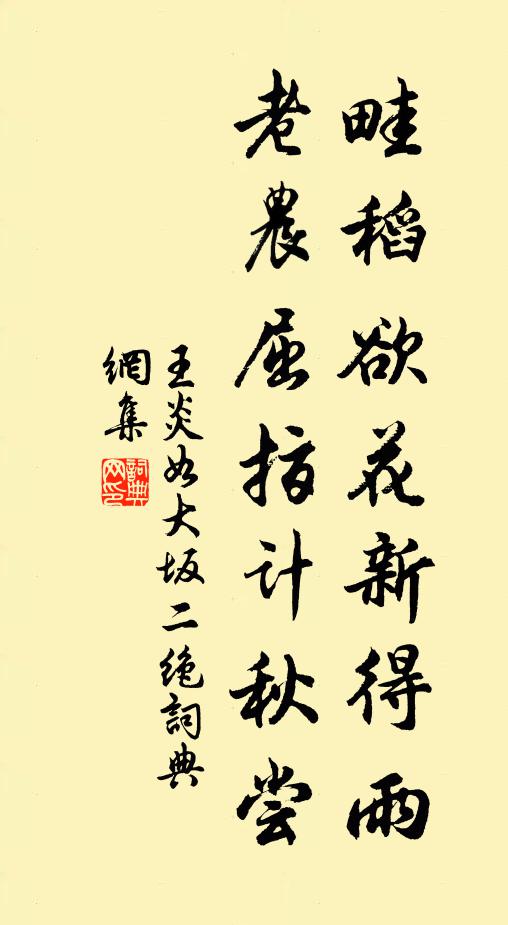 畦稻欲花新得雨
老農屈指计秋尝
王炎如大坂二绝詞典
網集
詞典網印